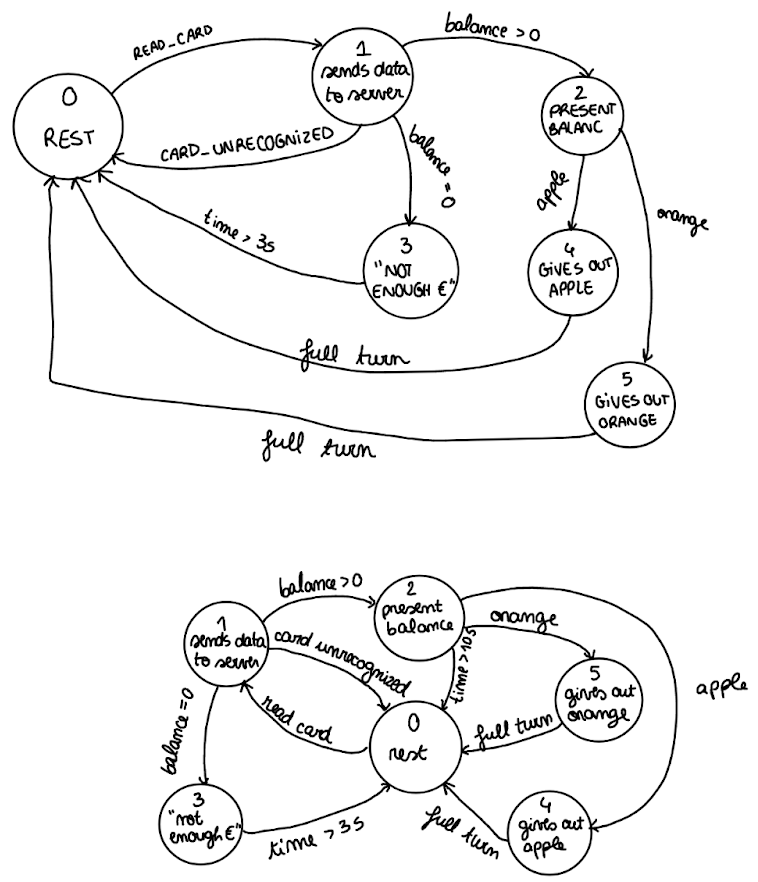 READ_CARD
balance > 0
0
REST
1
sends data
to server
2
PRESENT
BALANC
CARD_UNRECOGNIZED
balance = 0
apple
orange
time > 3s
3
"NOT
ENOUGH €"
4
GIVES OUT
APPLE
full turn
5
GIVES OUT
ORANGE
full turn
balance > 0
2
present
balance
1
sends data
to server
card unrecognized
orange
time > 10s
apple
5
gives out
orange
0
rest
read card
full turn
balance = 0
3
"not
enough €"
time > 3s
full turn
4
gives out
apple